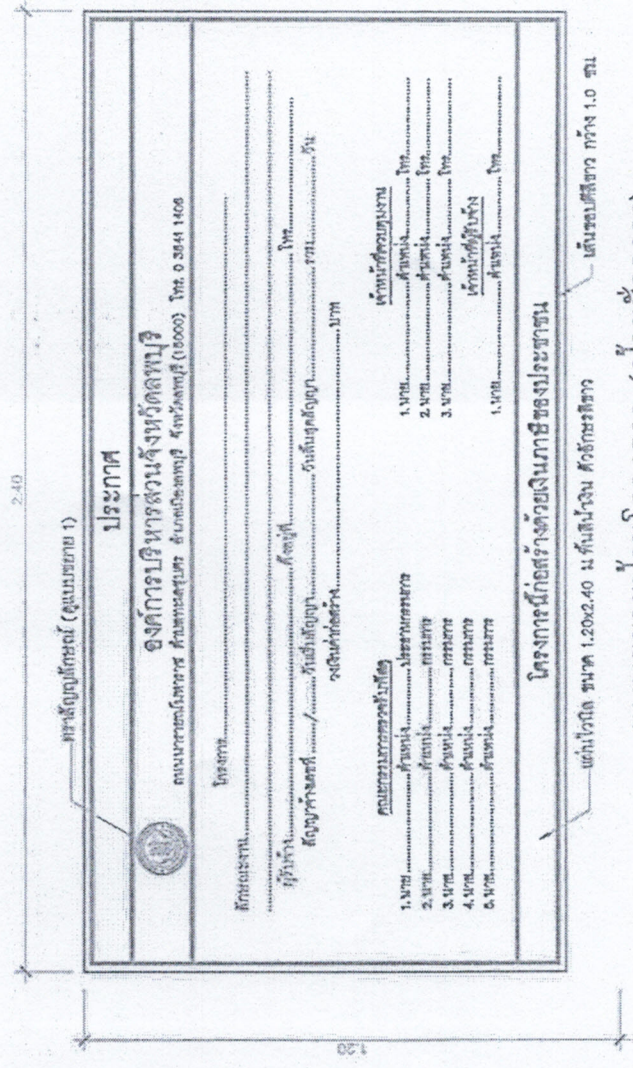 2.40
ตราสัญญลักษณ์ (ดูแบบขยาย 1)
ประกาศ
องค์การบริหารส่วนจังหวัดลพบุรี
ถนนนารายณ์มหาราช ตำบลทะเลชุบศร อำเภอเมืองลพบุรี จังหวัดลพบุรี (15000) โทร. 0 3641 1406
โครงการ
ลักษณะงาน
ผู้รับจ้าง ตั้งอยู่ที่ โทร.
สัญญาจ้างเลขที่ / วันเริ่มสัญญา วันสิ้นสุดสัญญา รวม วัน
วงเงินค่าก่อสร้าง บาท
คณะกรรมการตรวจรับพัสดุ
1. นาย ตำแหน่ง ประธานกรรมการ
2. นาย ตำแหน่ง กรรมการ
3. นาย ตำแหน่ง กรรมการ
4. นาย ตำแหน่ง กรรมการ
5. นาย ตำแหน่ง กรรมการ
เจ้าหน้าที่ควบคุมงาน
1. นาย ตำแหน่ง โทร.
2. นาย ตำแหน่ง โทร.
3. นาย ตำแหน่ง โทร.
เจ้าหน้าที่ผู้รับจ้าง
1. นาย ตำแหน่ง โทร.
โครงการนี้ก่อสร้างด้วยเงินภาษีของประชาชน
1.20
แผ่นไวนิล ขนาด 1.20x2.40 ม พื้นสีน้ำเงิน ตัวอักษรสีขาว
เส้นขอบสีขาว กว้าง 1.0 ซม